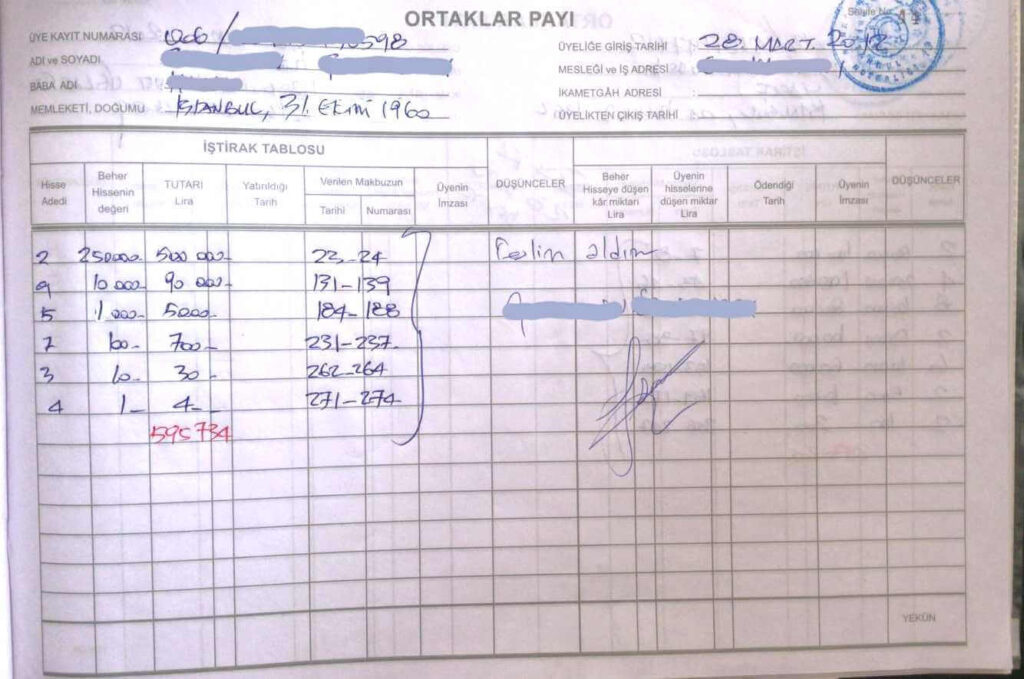 ORTAKLAR PAYI
Sayfa No. 44
ÜYE KAYIT NUMARASI
ADI ve SOYADI
BABA ADI
MEMLEKETİ, DOĞUMU İSTANBUL, 31. EKİM 1960
ÜYELİĞE GİRİŞ TARİHİ : 28. MART. 2012
MESLEĞİ ve İŞ ADRESİ :
İKAMETGÂH ADRESİ :
ÜYELİKTEN ÇIKIŞ TARİHİ :
İŞTİRAK TABLOSU
Hisse Adedi
Beher Hissenin değeri
TUTARI Lira
Yatırıldığı Tarih
Verilen Makbuzun
Tarihi
Numarası
Üyenin İmzası
DÜŞÜNCELER
Beher Hisseye düşen kâr miktarı Lira
Üyenin hisselerine düşen miktar Lira
Ödendiği Tarih
Üyenin İmzası
DÜŞÜNCELER
2 250000- 500 000- 23-24 Teslim aldım
9 10 000- 90 000- 131-139
5 1 000- 5000- 184-188
7 100- 700- 231-237
3 10- 30- 262-264
4 1- 4- 271-274
595734
YEKÜN